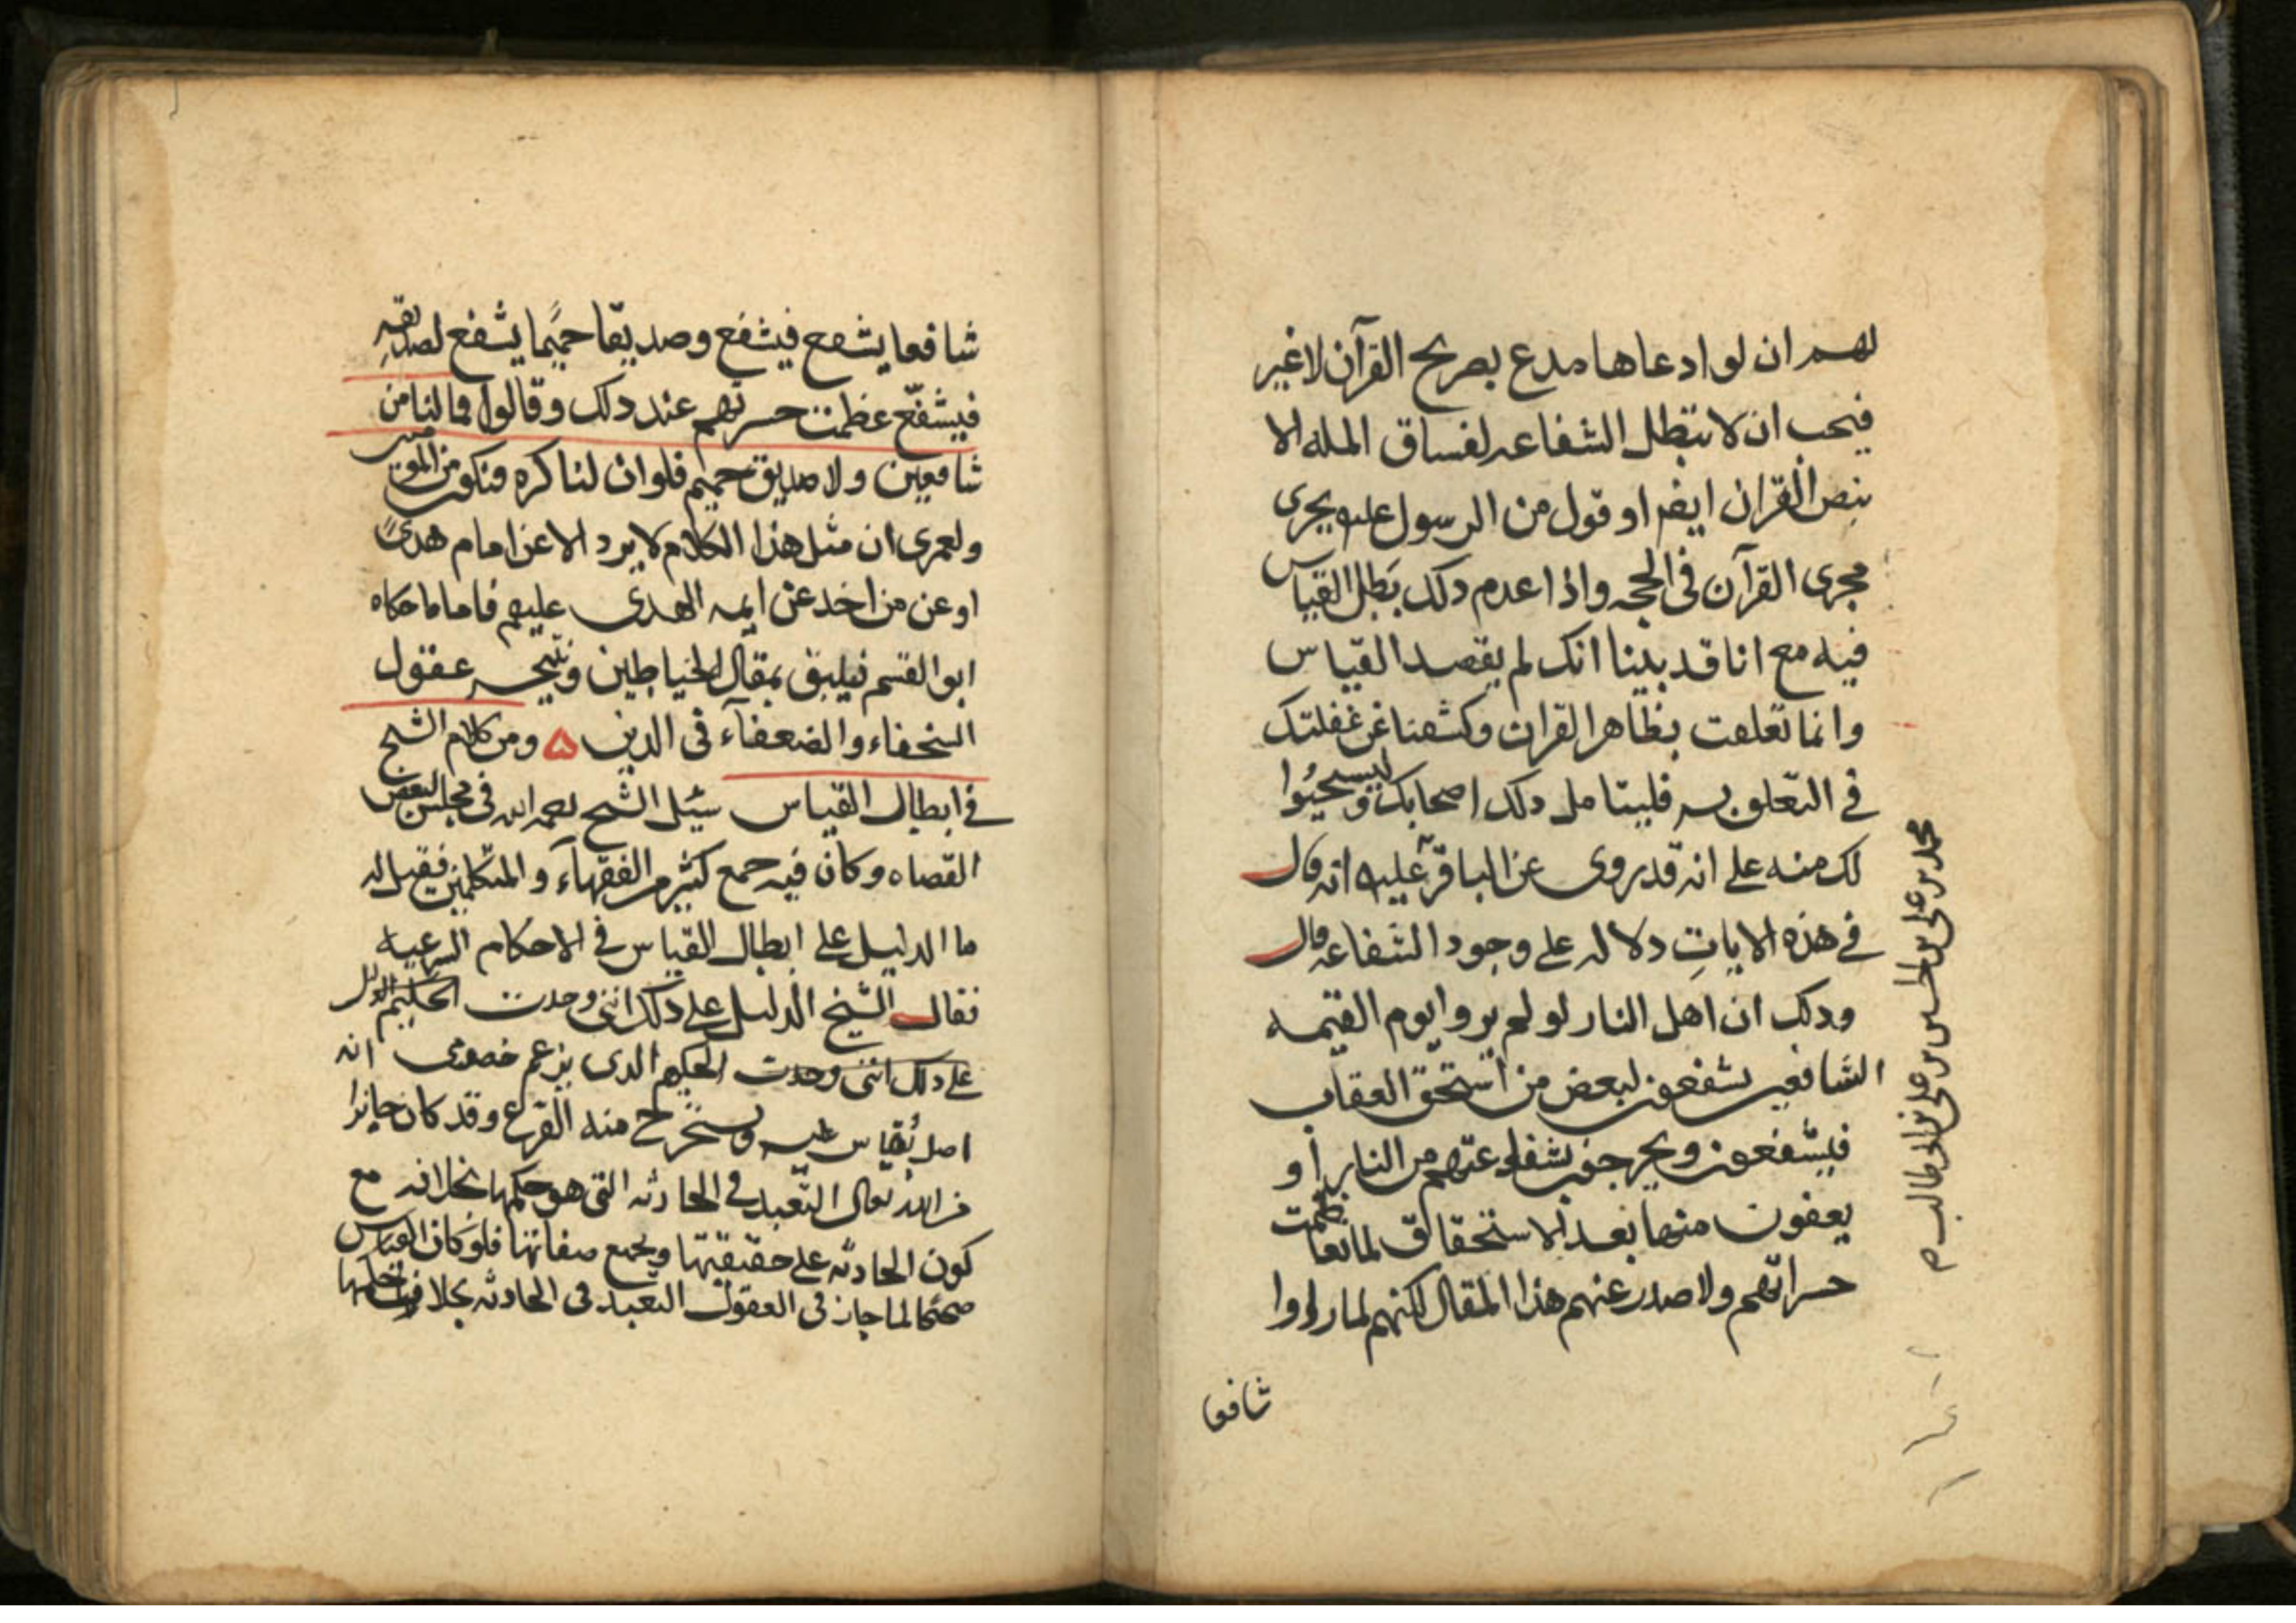 لهم ان لو ادعاها مدع بصريح القرآن لا غير
فيجب ان لا تبطل الشفاعه لفساق المله الا
بنص القران ايضا او قول من الرسول عليه يجرى
مجرى القرآن فى الحجه واذا عدم دلك بطل القياس
فيه مع انا قد بينا انك لم يقصد القياس
وانما تعلقت بظاهر القران وكشفنا عن غفلتك
فى التعلق به فليتامل دلك اصحابك وليستحيوا
لك منه على انه قد روى عن الباقر عليه انه قال
فى هذه الايات دلاله على وجود الشفاعه قال
ودلك ان اهل النار لو لم يروا يوم القيمه
الشافعين يشفعون لبعض من استحق العقاب
فيشفعون ويخرجون بشفاعتهم من النار او
يعفون منها بعد الاستحقاق لما تعاظمت
حسراتهم ولا صدر عنهم هذا المقال لكنهم لما راوا
شافعا
محمد بن على بن الحسين بن على بن ابى طالب م
شافعا يشفع فيشفع وصديقا حميما يشفع لصديقه
فيشفع عظمت حسرتهم عند دلك وقالوا فما لنا من
شافعين ولا صديق حميم فلو ان لنا كره فنكون من المومنين
ولعمرى ان مثل هذا الكلام لا يرد الا عن امام هدى
او عن من اخذ عن ايمه الهدى عليهم فاما ما حكاه
ابو القسم فيليق بمقال الخياطين ونتيجه عقول
السخفاء والضعفآء فى الدين ۵ ومن كلام الشيخ
فى ابطال القياس سئل الشيخ رحمه الله فى مجلس لبعض
القضاه وكان فيه جمع كثير من الفقهآء والمتكلمين فقيل له
ما الدليل على ابطال القياس فى الاحكام الشرعيه
فقال الشيخ الدليل على دلك اننى وجدت الحكيم الدليل
على دلك اننى وجدت الحكم الدى يزعم خصومى انه
اصل يقاس عليه ويستخرج منه الفرع وقد كان جايزا
من الله تعالى التعبد فى الحادثه التى هو حكمها بخلافه مع
كون الحادثه على حقيقتها وبجميع صفاتها فلو كان القياس
صحيحا لما جاز فى العقول التعبد فى الحادثه بخلاف حكمها